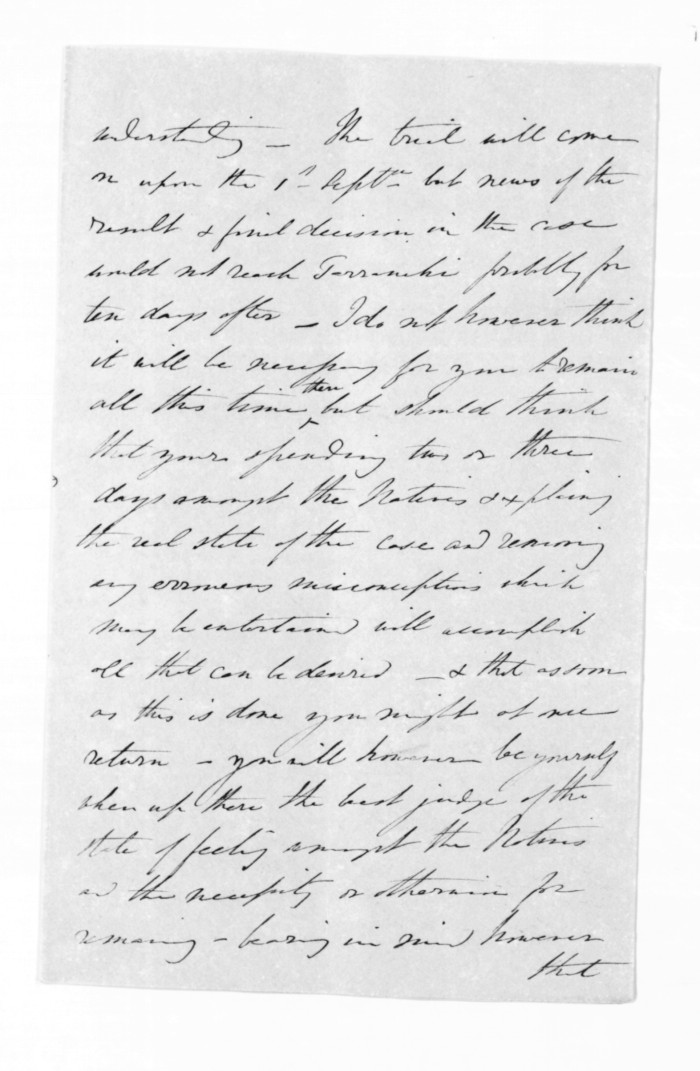 understanding _ The trial will come
on upon the 1st Septr but news of the
result & final decision in the case
would not reach Tarranaki probably for
ten days after _ I do not however think
it will be necessary for you to remain
all this time there but should think
that your spending two or three
days amongst the Natives & explaining
the real state of the case and removing
any erroneous misconceptions which
may be entertained will accomplish
all that can be desired _ & that as soon
as this is done you might at once
return _ you will however be yourself
when up there the best judge of the
state of feeling amongst the Natives
and the necessity or otherwise for
remaining _ bearing in mind however
that